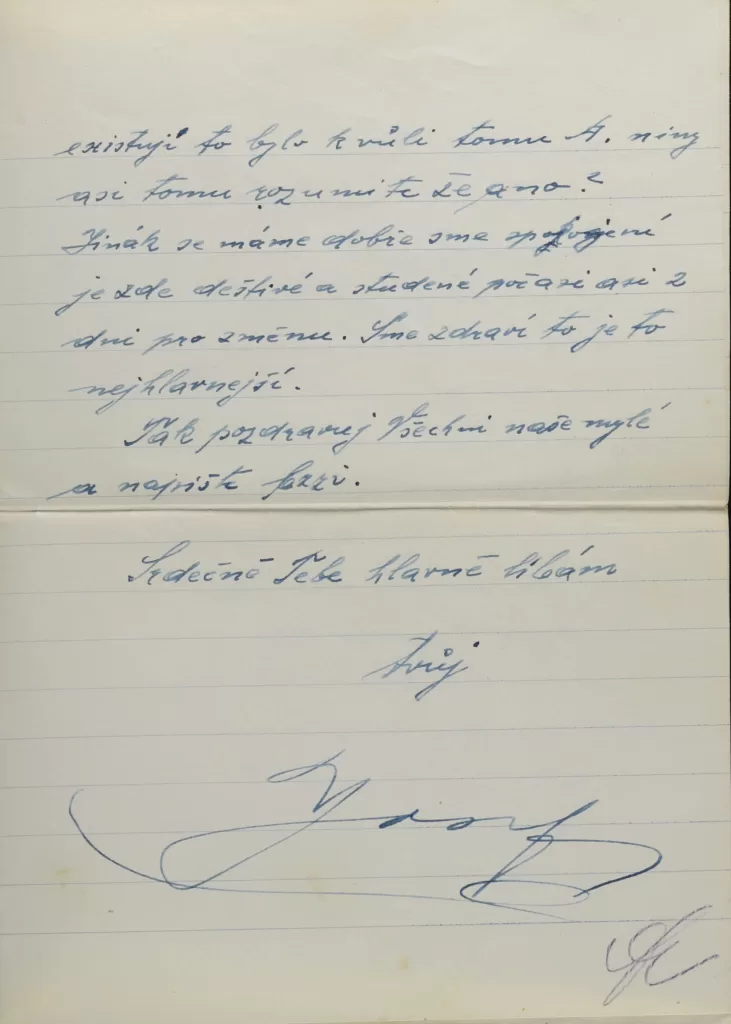 existují to bylo kvůli tomu A. niny
asi tomu rozumíte že ano?
Jinák se máme dobře sme spokojení
je zde deštivé a studené počasi asi 2
dni pro změnu. Sme zdraví to je to
nejhlavnejší.
Ták pozdravuj Všechni naše mylé
a napište brzi.
Srdečně Tebe hlavně líbám
tvůj
Josef